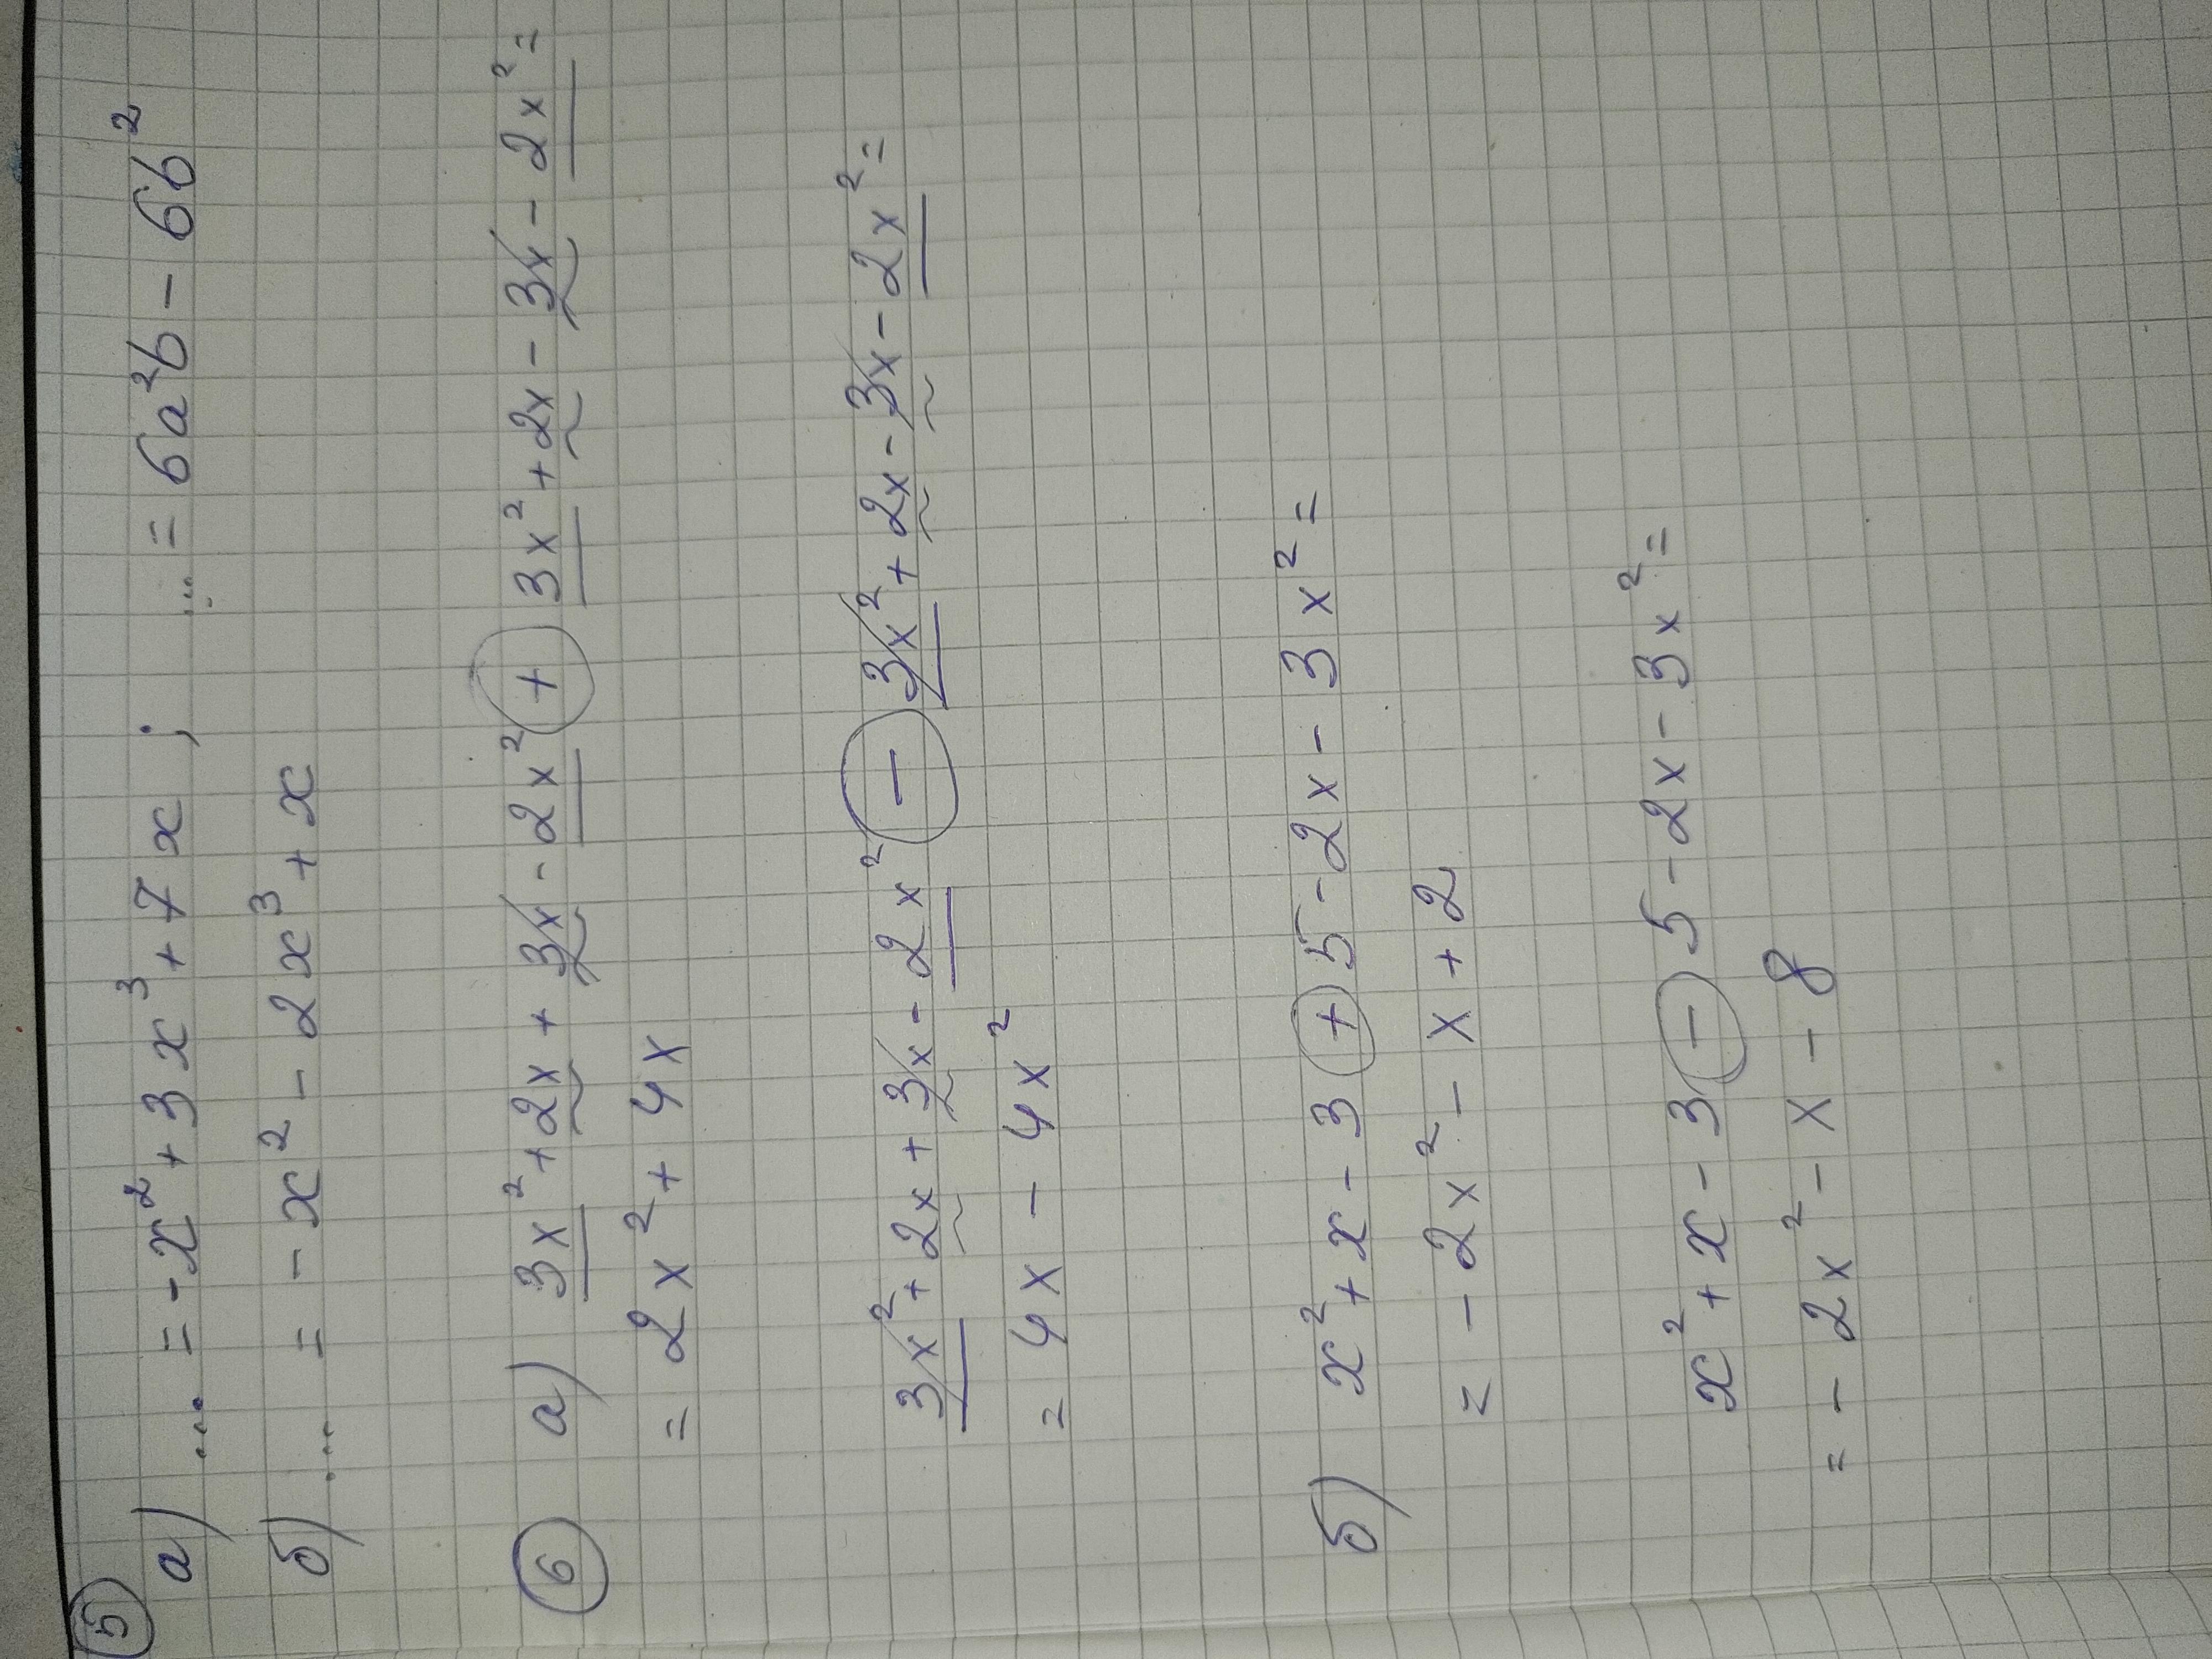 5
а) ... = -x² + 3x³ + 7x ; ... = 6a²b - 6b²
б) ... = - x² - 2x³ + x
6 а) 3x² + 2x + 3x - 2x² + 3x² + 2x - 3x - 2x² =
= 2x² + 4x
3x² + 2x + 3x - 2x² - 3x² + 2x - 3x - 2x² =
= 4x - 4x²
б) x² + x - 3 + 5 - 2x - 3x² =
= - 2x² - x + 2
x² + x - 3 - 5 - 2x - 3x² =
= - 2x² - x - 8